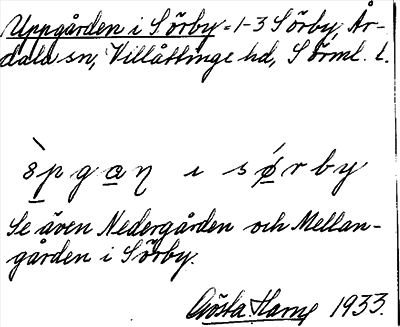 Uppgården i Sörby = 1-3 Sörby, År-
dala sn, Villåttinge hd, Sörml. l.
i sørby
Se även Nedergården och Mellan-
gården i Sörby.
Gösta Hamp 1933.